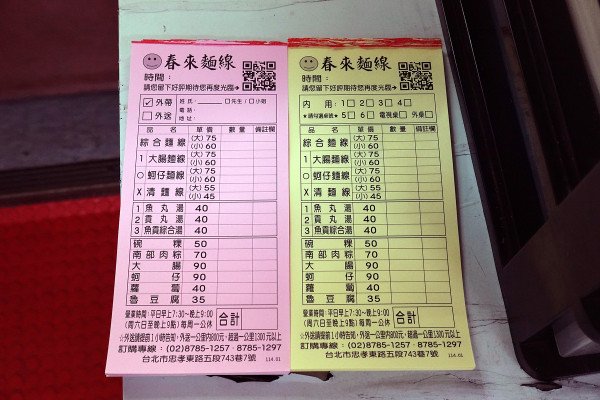 春來麵線
時間：
請您留下好評期待您再度光臨➔
☑外帶 姓名-______ □先生/□小姐
電話-
□外送 地址-
品名 單價 數量 備註欄
綜合麵線 (大)75 (小)60
1 大腸麵線 (大)75 (小)60
○ 蚵仔麵線 (大)75 (小)60
X 清麵線 (大)55 (小)45
1 魚丸湯 40
2 貢丸湯 40
3 魚貢綜合湯 40
碗粿 50
南部肉粽 70
大腸 90
蚵仔 90
蘿蔔 40
魯豆腐 35
營業時間:平日早上7:30~晚上9:00
(周六日至晚上9點)每周一公休
合計
☆外送請提前1小時告知，外送一公里內800元，超過一公里1300元以上
訂購專線：(02)8785-1257·8785-1297
台北市忠孝東路五段743巷7號 114.01
春來麵線
時間：
請您留下好評期待您再度光臨➔
內用：1□ 2□ 3□ 4□
★請勾選桌號★ 5□ 6□ 電視桌□ 外桌□
品名 單價 數量 備註欄
綜合麵線 (大)75 (小)60
1 大腸麵線 (大)75 (小)60
○ 蚵仔麵線 (大)75 (小)60
X 清麵線 (大)55 (小)45
1 魚丸湯 40
2 貢丸湯 40
3 魚貢綜合湯 40
碗粿 50
南部肉粽 70
大腸 90
蚵仔 90
蘿蔔 40
魯豆腐 35
營業時間:平日早上7:30~晚上9:00
(周六日至晚上9點)每周一公休
合計
☆外送請提前1小時告知，外送一公里內800元，超過一公里1300元以上
訂購專線：(02)8785-1257·8785-1297
台北市忠孝東路五段743巷7號 114.01